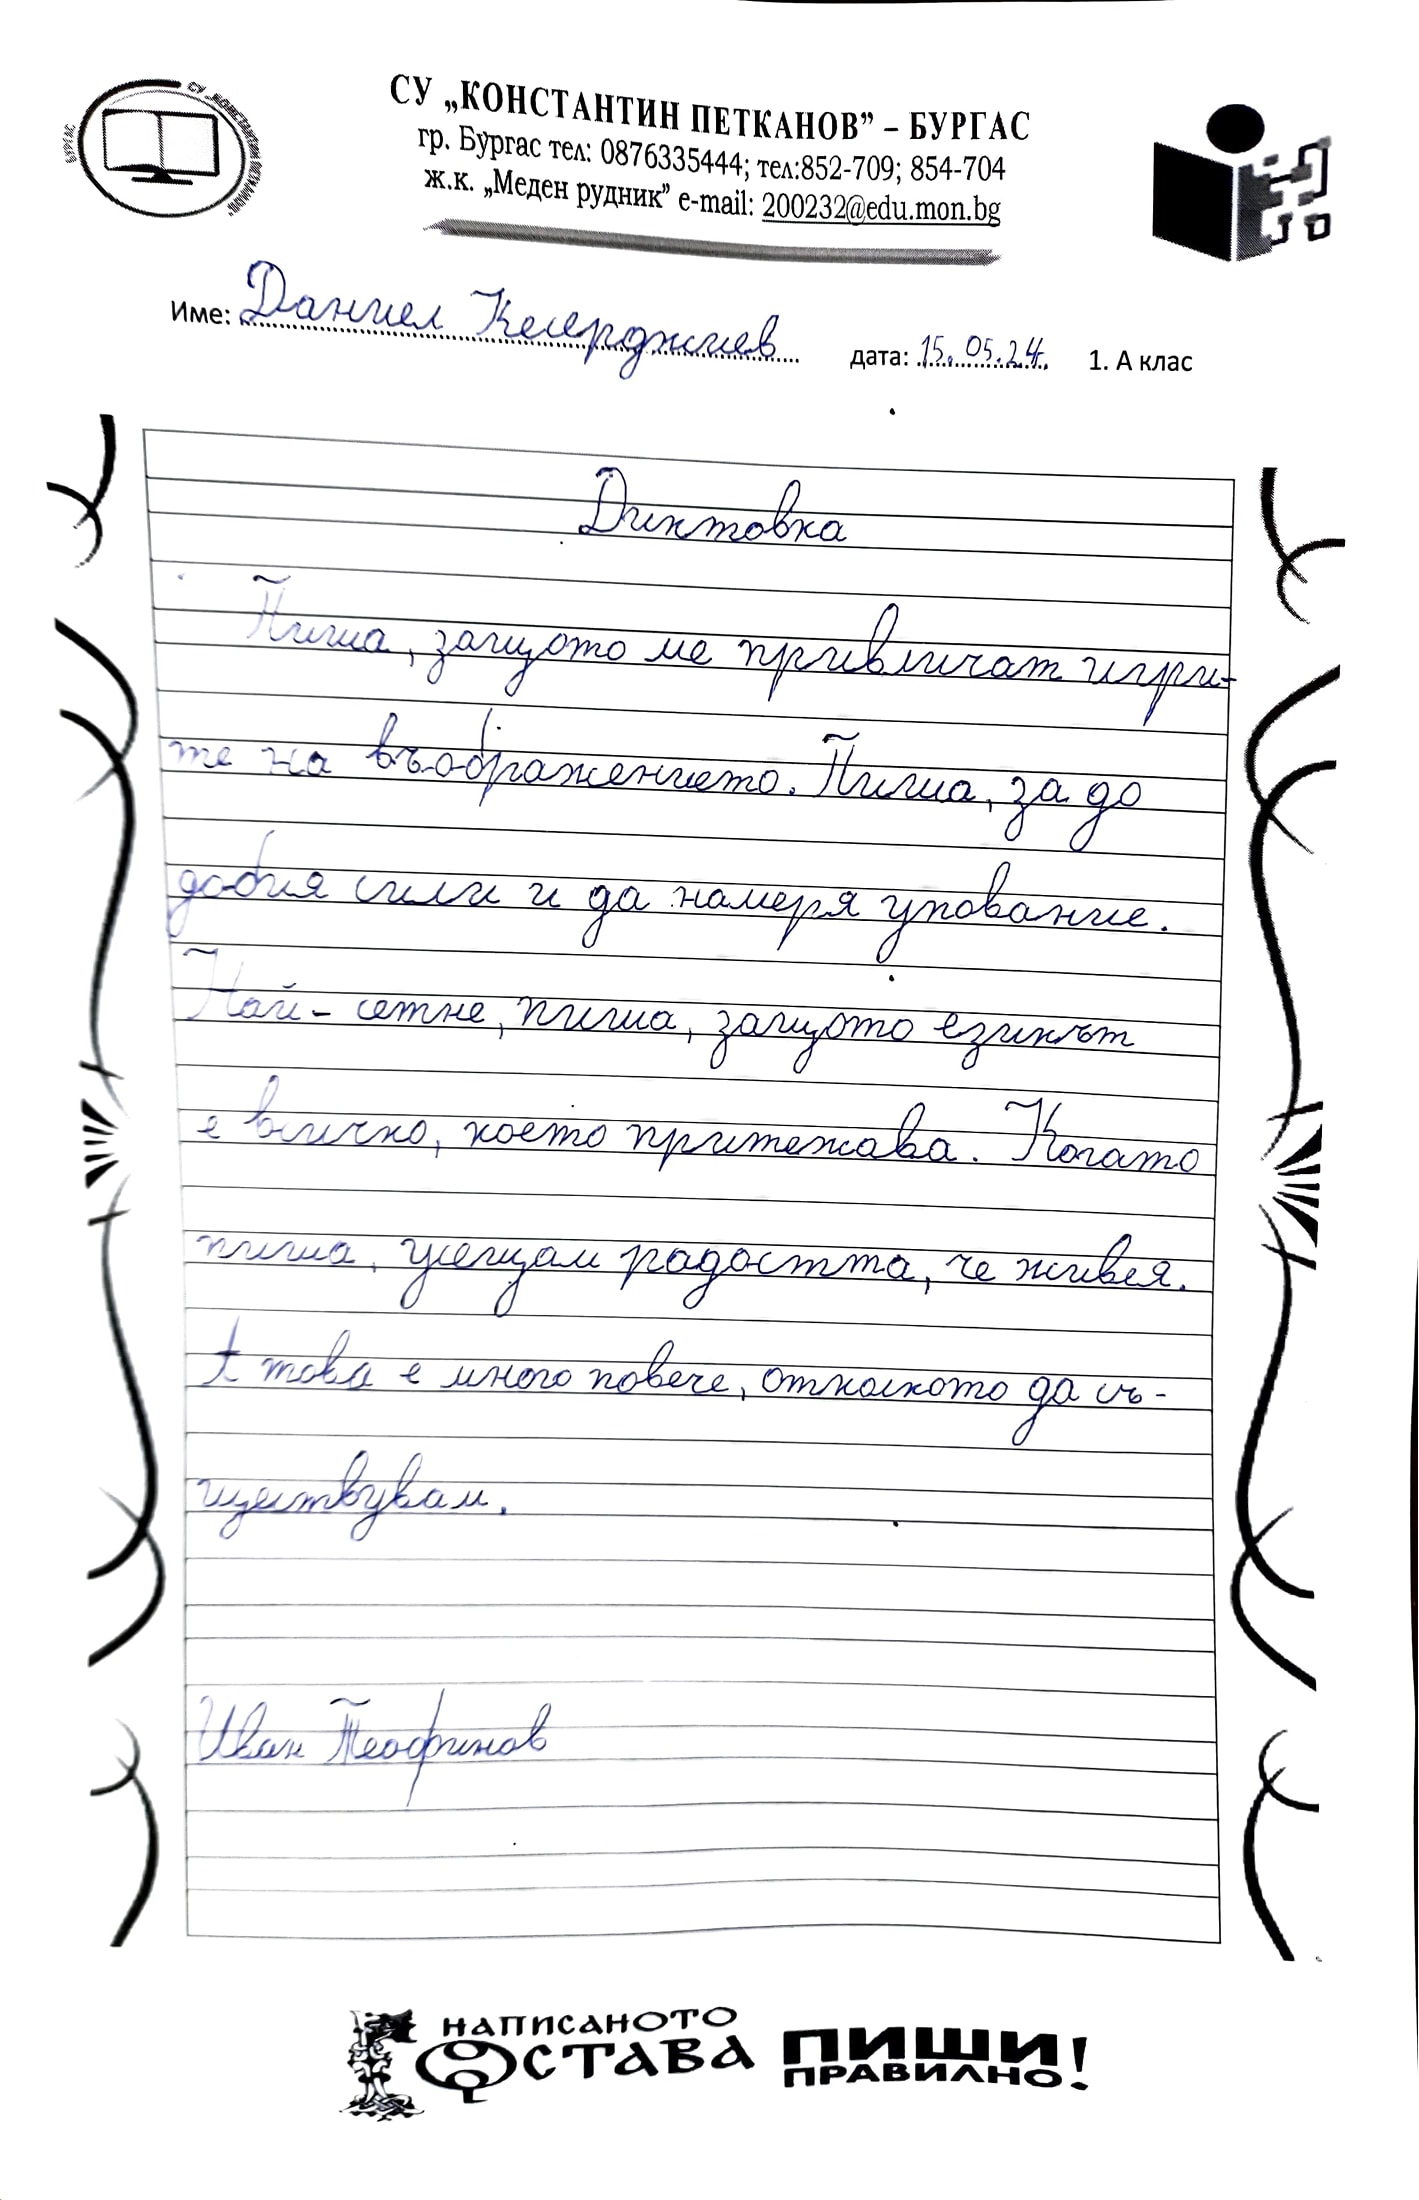 БУРГАС СУ „КОНСТАНТИН ПЕТКАНОВ"
СУ „КОНСТАНТИН ПЕТКАНОВ” – БУРГАС
гр. Бургас тел: 0876335444; тел:852-709; 854-704
ж.к. „Меден рудник” e-mail: 200232@edu.mon.bg
Име: Даниел Кесерджиев дата: 15.05.24г. 1. А клас
Диктовка
Пиша, защото ме привличат игри-
те на въображението. Пиша, за до
добия сили и да намеря упование.
Най-сетне, пиша, защото езикът
е всичко, което притежава. Когато
пиша, усещам радостта, че живея.
А това е много повече, отколкото да съ-
ществувам.
Иван Теофинов
НАПИСАНОТО
ОСТАВА ПИШИ
ПРАВИЛНО!